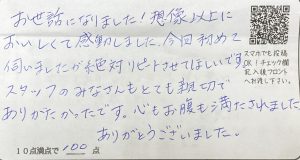 お世話になりました！想像以上に
おいしくて感動しました。今回初めて
伺いましたが絶対リピートさせてほしいです。
スタッフのみなさんもとても親切で
ありがたかったです。心もお腹も満たされました。
ありがとうございました。
10点満点で 100 点
スマホでも投稿
OK！チェック欄
記入後フロント
へお渡し下さい。